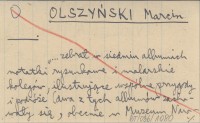 OLSZYŃSKI Marcin
... zebrał w siedmiu albumach
notatki rysunkowe i malarskie
kolegów, ilustrujące wspólne przygody
i podróże (dwa z tych albumów zacho-
wały się, obecnie w Muzeum Naro-